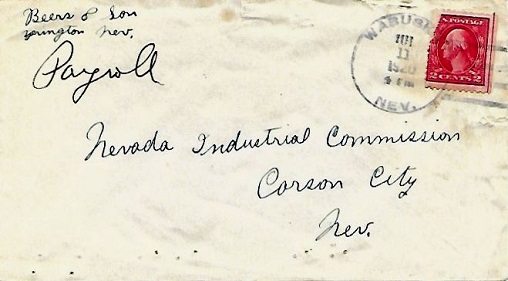 Beers & Son
Yerington Nev.
Payroll
WABUSKA
11
1920
4 PM
NEV.
U.S. POSTAGE
2 CENTS 2
Nevada Industrial Commission
Carson City
Nev.